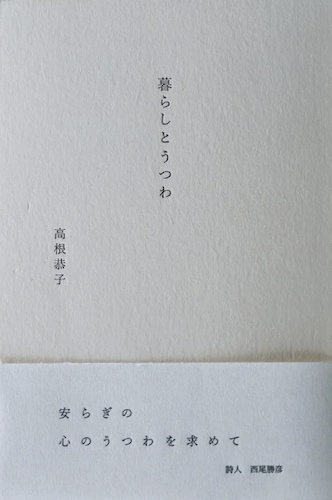 暮らしとうつわ
高根恭子
安らぎの
心のうつわを求めて
詩人 西尾勝彦